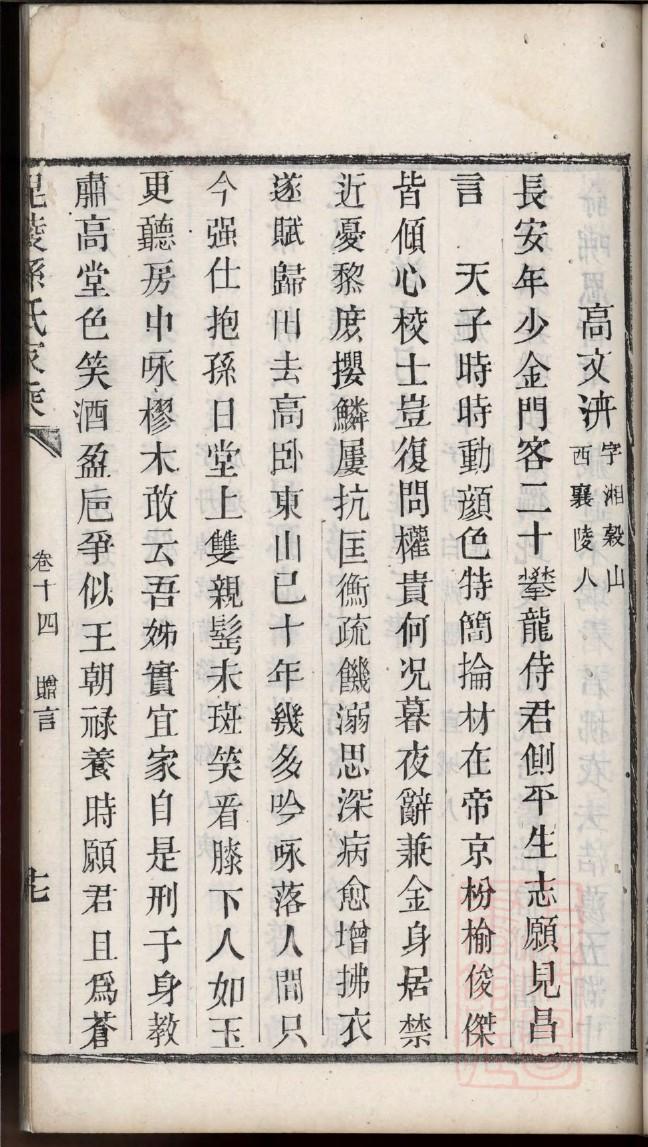 高文泮 字湘穀山
西襄陵人
長安年少金門客二十攀龍侍君側平生志願見昌
言　天子時時動顔色特簡掄材在帝京枌榆俊傑
皆傾心校士豈復問權貴何况暮夜辭兼金身居禁
近憂黎庶攖鱗屢抗匡衡疏饑溺思深病愈增拂衣
遂賦歸田去高卧東山已十年幾多吟咏落人間只
今强仕抱孫日堂上雙親髩未斑笑看膝下人如玉
更聽房中咏樛木敢云吾姊實宜家自是刑于身教
肅高堂色笑酒盈卮爭似王朝祿養時願君且爲蒼
毘陵孫氏家乘
卷十四　贈言
七